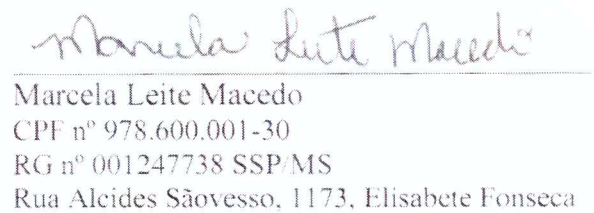 Marcela Leite Macedo
Marcela Leite Macedo
CPF nº 978.600.001-30
RG nº 001247738 SSP/MS
Rua Alcides Sãovesso, 1173, Elisabete Fonseca